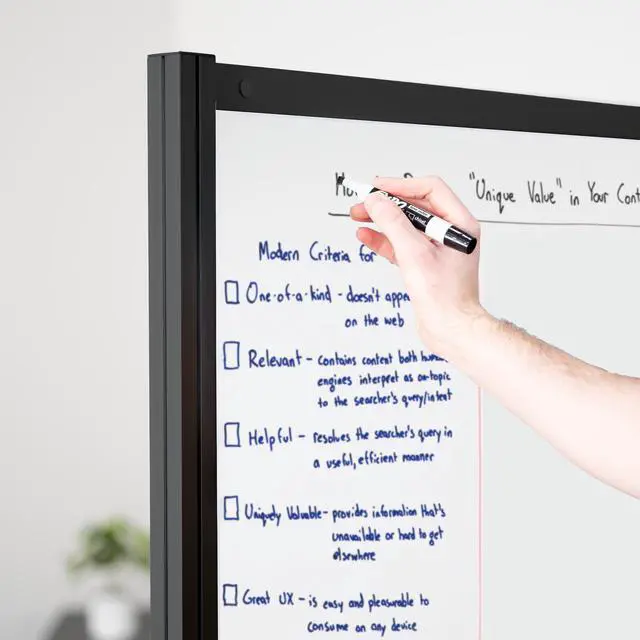 "Unique Value" in Your Cont
Modern Criteria for
One-of-a-kind - doesn't appe
on the web
Relevant - contains content both human
engines interpret as on-topic
to the searcher's query/intent
Helpful - resolves the searcher's query in
a useful, efficient manner
Uniquely Valuable - provides information that's
unavailable or hard to get
elsewhere
Great UX - is easy and pleasurable to
consume on any device
EXPO